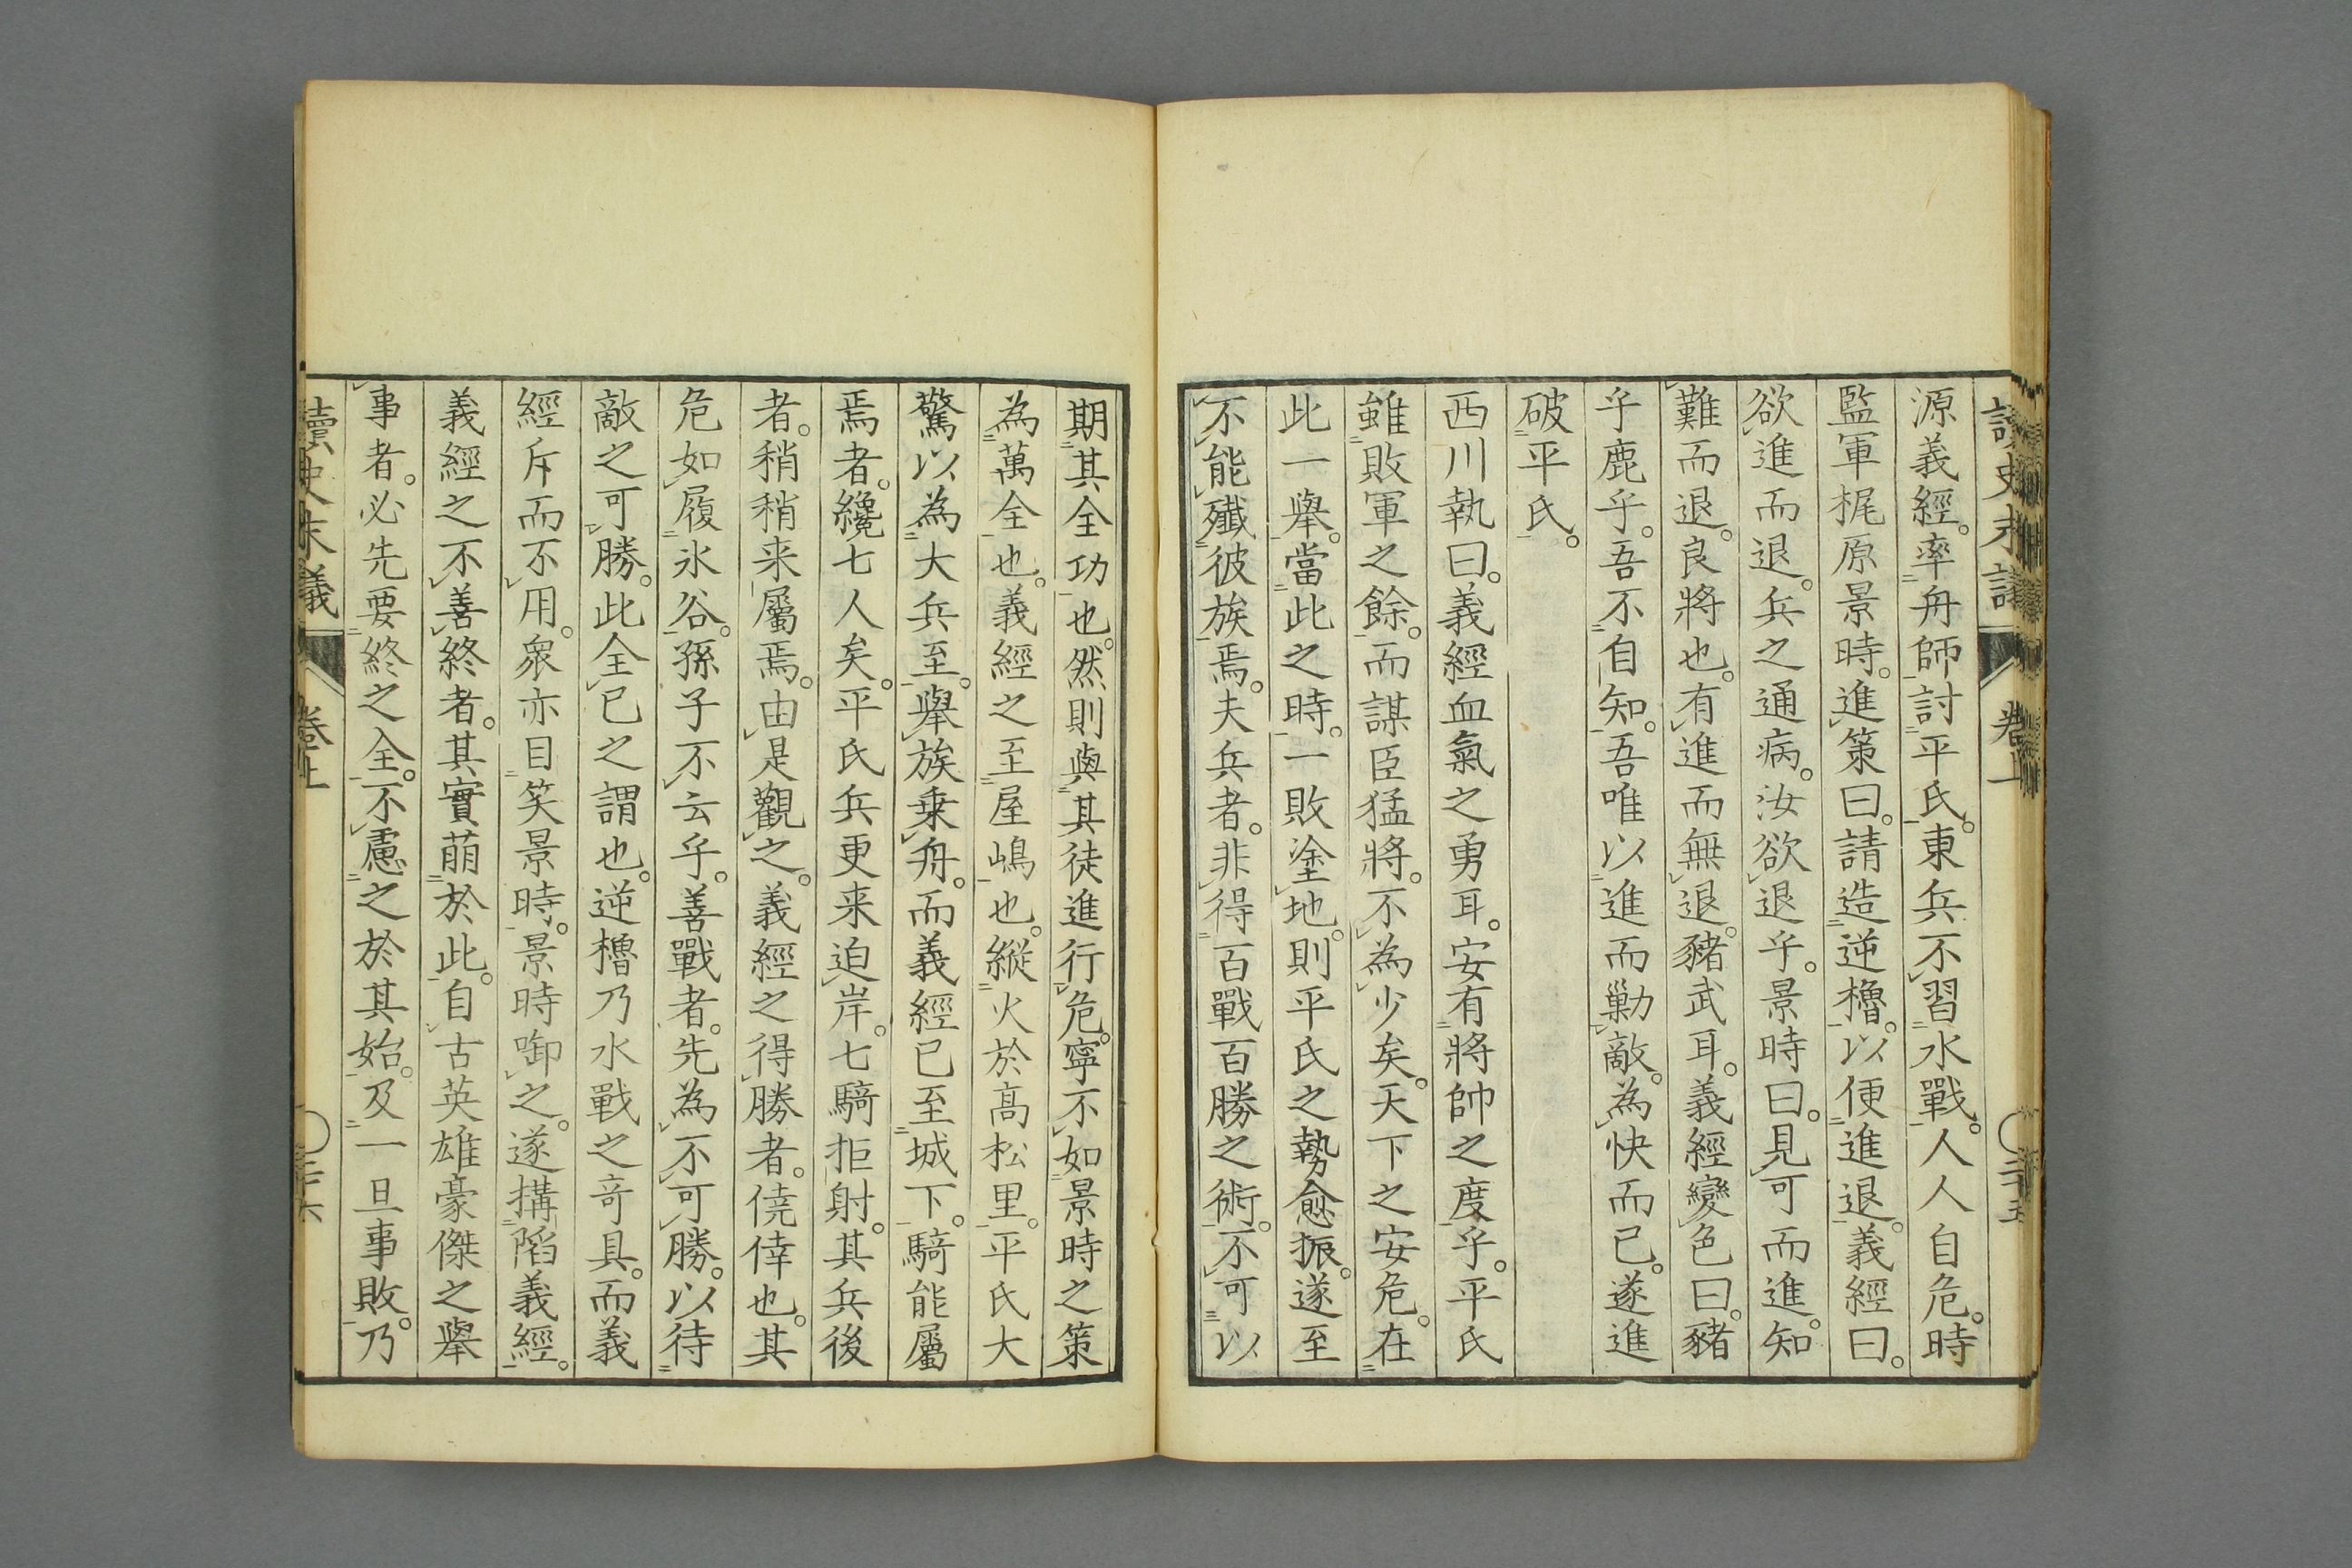 源義經。率舟師討平氏。東兵不習水戰。人人自危。時
監軍梶原景時。進策曰。請造逆櫓。以便進退。義經曰。
欲進而退。兵之通病。汝欲退乎。景時曰。見可而進。知
難而退。良將也。有進而無退。豬武耳。義經變色曰。豬
乎鹿乎。吾不自知。吾唯以進而勦敵。為快而已。遂進
破平氏。
西川執曰。義經血氣之勇耳。安有將帥之度乎。平氏
雖敗軍之餘。而謀臣猛將。不為少矣。天下之安危。在
此一舉。當此之時。一敗塗地。則平氏之勢愈振。遂至
不能殲彼族焉。夫兵者。非得百戰百勝之術。不可以
期其全功也。然則與其徒進行危。寧不如景時之策
為萬全也。義經之至屋嶋也。縱火於高松里。平氏大
驚以為大兵至。舉族乗舟。而義經已至城下。騎能屬
焉者。纔七人矣。平氏兵更来迫岸。七騎拒射。其兵後
者。稍稍来屬焉。由是觀之。義經之得勝者。僥倖也。其
危如履氷谷。孫子不云乎。善戰者。先為不可勝。以待
敵之可勝。此全已之謂也。逆櫓乃水戰之竒具。而義
經斥而不用。衆亦目笑景時。景時啣之。遂搆陷義經。
義經之不善終者。其實萠於此。自古英雄豪傑之舉
事者。必先要終之全。不慮之於其始。及一旦事敗。乃
讀史末議 卷上 二十六